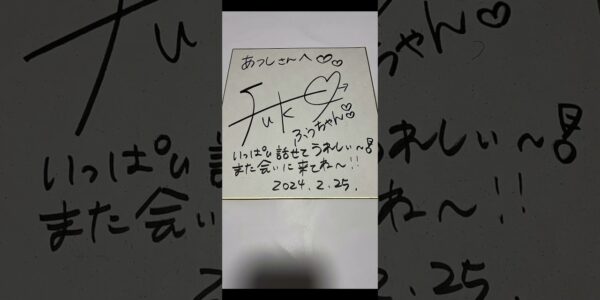 あつしさんへ♡♡
Fuk♡
ふうちゃん♡
いっぱい話せてうれしい〜!
また会いに来てね〜!!
2024.2.25.